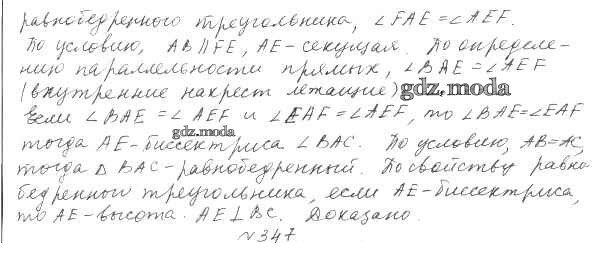 равнобедренного треугольника, ∠FAE=∠AEF.
По условию, AB∥FE, AE-секущая. По определе-
нию параллельности прямых, ∠BAE=∠AEF
(внутренние накрест лежащие) gdz.moda
Если ∠BAE=∠AEF и ∠EAF=∠AEF, то ∠BAE=∠EAF
gdz.moda
тогда AE-биссектриса ∠BAC. По условию, AB=AC,
тогда △BAC-равнобедренный. По свойству равно-
бедренного треугольника, если AE-биссектриса,
то AE-высота. AE⊥BC. Доказано.
№347